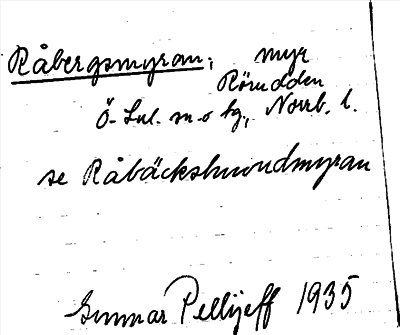 Råbergsmyran, myr
Rörudden
Ö-Lul. m-o tg, Norrb. l.
se Råbäckshuvudmyran
Gunnar Pellijeff 1935